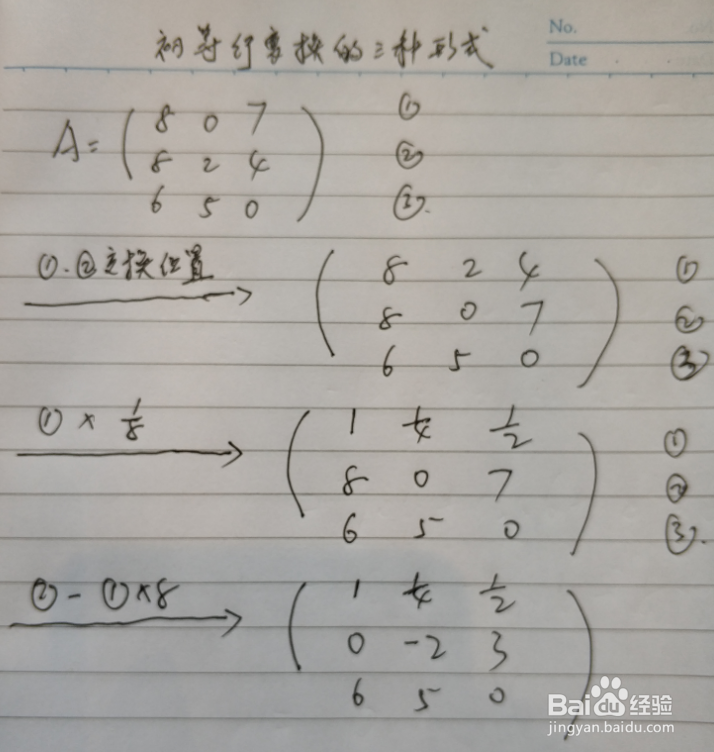 初等行变换的三种形式
No.
Date
A= ( 8 0 7 ①
8 2 4 ②
6 5 0 ) ③.
①.②交换位置
( 8 2 4 ①
8 0 7 ②
6 5 0 ) ③
① × 1/8
( 1 1/4 1/2 ①
8 0 7 ②
6 5 0 ) ③.
② - ①×8
( 1 1/4 1/2
0 -2 3
6 5 0 )
Baidu经验
jingyan.baidu.com